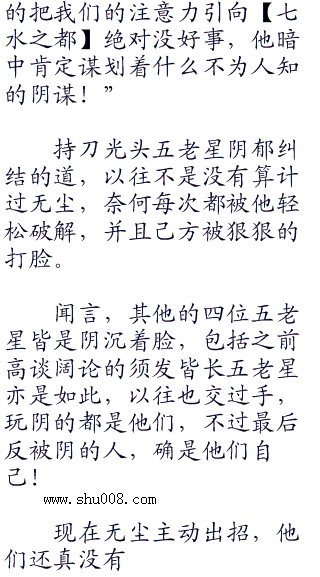 的把我们的注意力引向【七
水之都】绝对没好事，他暗
中肯定谋划着什么不为人知
的阴谋！”
持刀光头五老星阴郁纠
结的道，以往不是没有算计
过无尘，奈何每次都被他轻
松破解，并且己方被狠狠的
打脸。
闻言，其他的四位五老
星皆是阴沉着脸，包括之前
高谈阔论的须发皆长五老星
亦是如此，以往也交过手，
玩阴的都是他们，不过最后
反被阴的人，确是他们自
己！
www.shu008.com
现在无尘主动出招，他
们还真没有